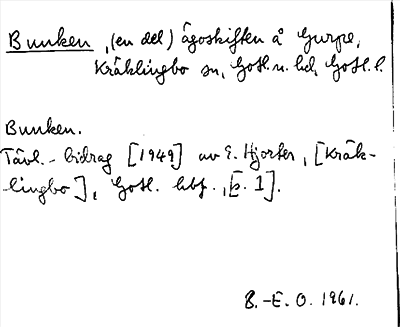 Bunken, (en del) ägoskiften å Gurpe,
Kräklingbo sn, Gotl. n. hd, Gotl. l.
Bunken.
Tävl.-bidrag [1949] av E. Hjorter, [Kräk-
-lingbo], Gotl. hbf., [s. 1].
B.-E. O. 1961.